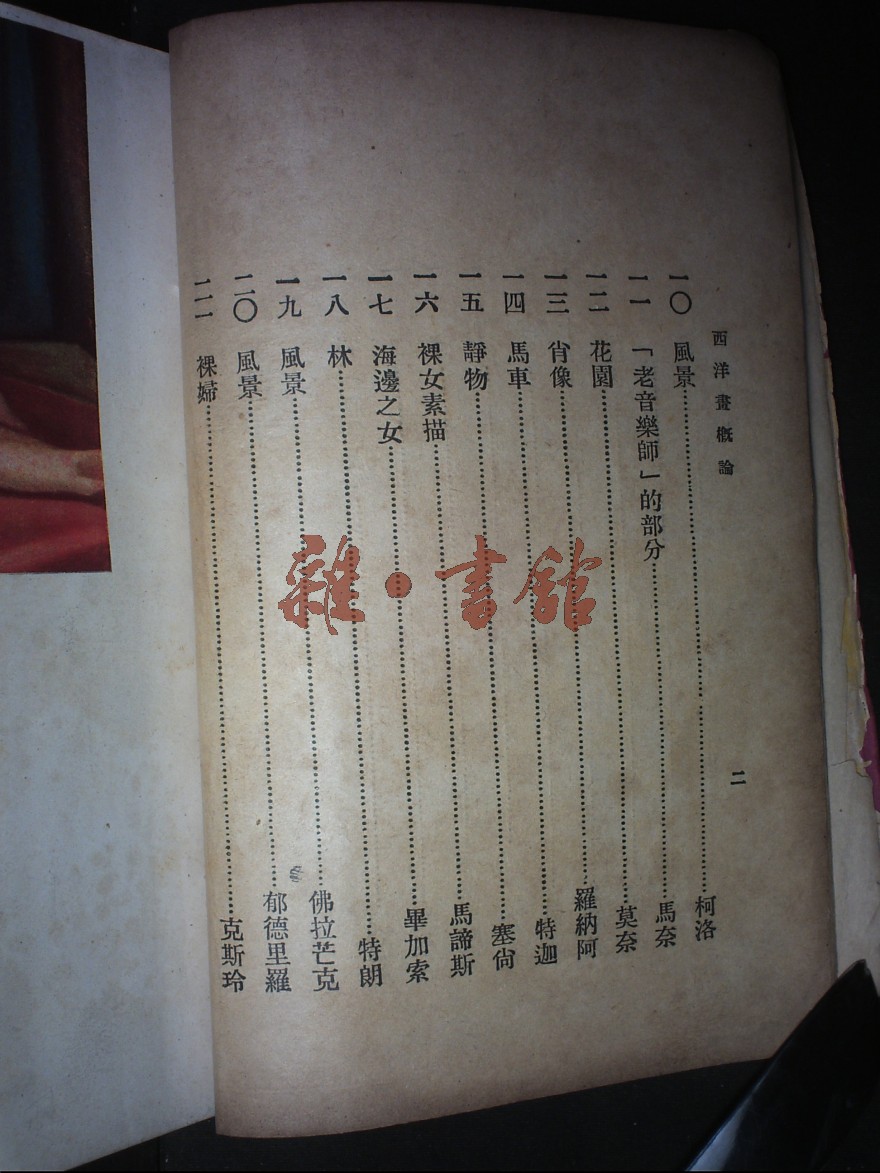 西洋畫概論
二
一〇 風景……柯洛
一一 「老音樂師」的部分……馬奈
一二 花園……莫奈
一三 肖像……羅納阿
一四 馬車……特迦
一五 靜物……塞尙
一六 裸女素描……馬諦斯
一七 海邊之女……畢加索
一八 林……特朗
一九 風景……佛拉芒克
二〇 風景……郁德里羅
二一 裸婦……克斯玲
雜·書館